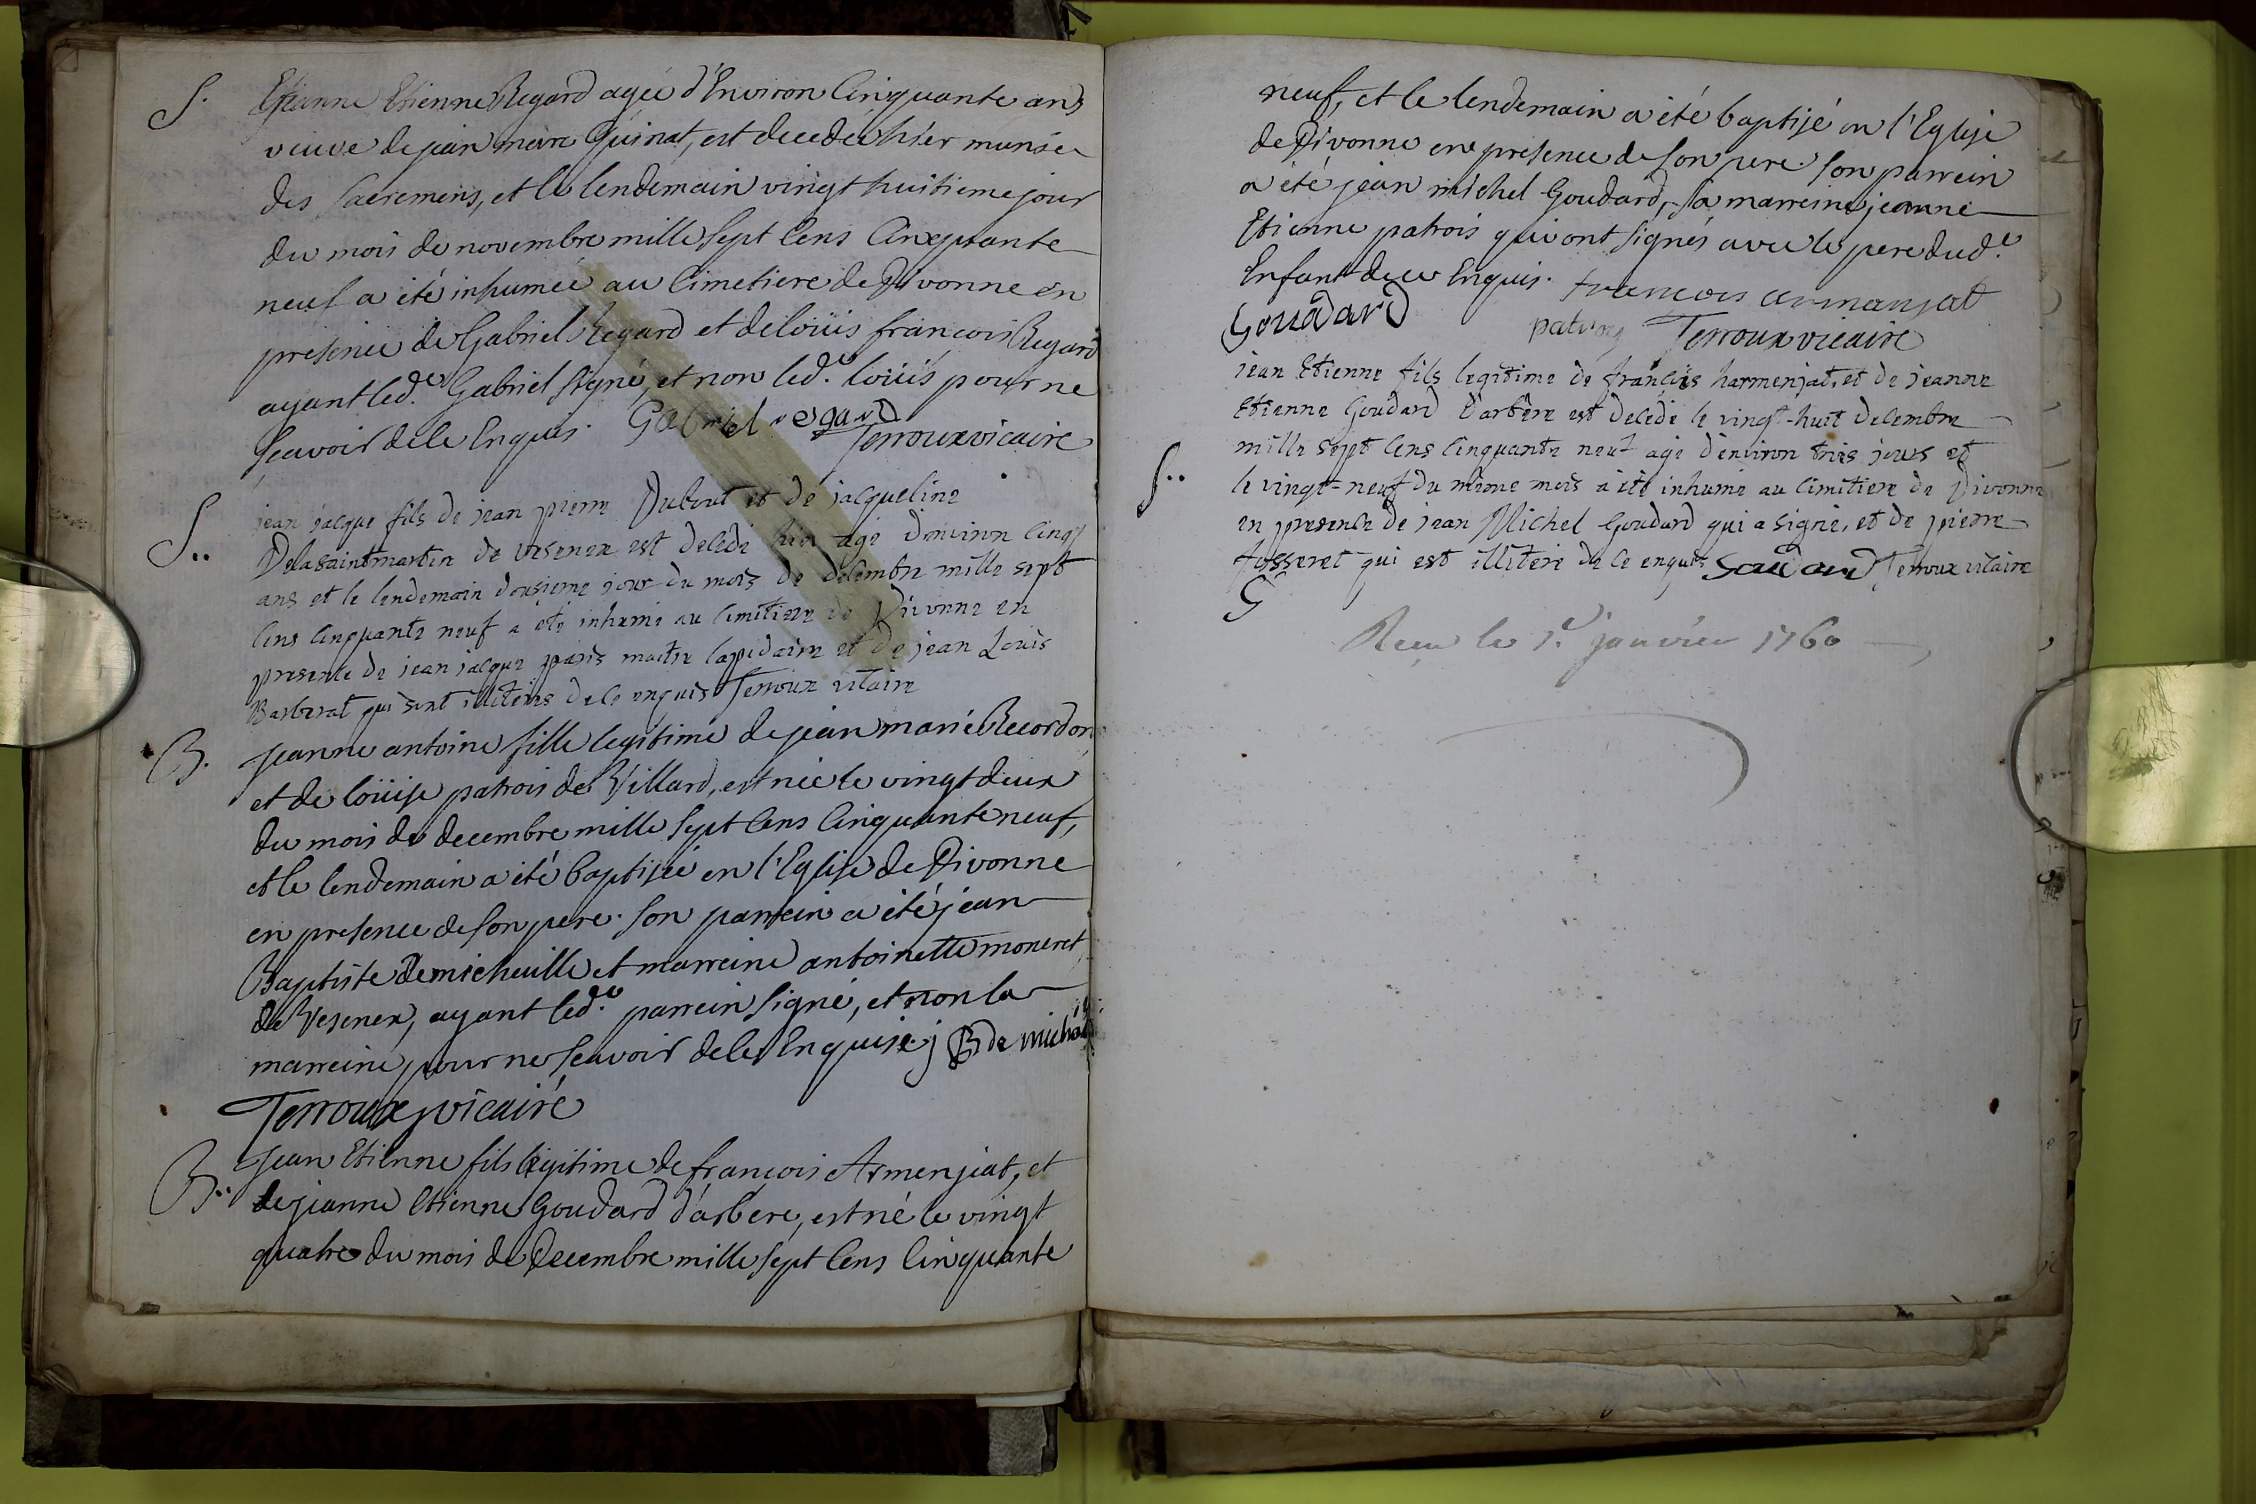 S. Etienne Etienne Regard agée d'Environ Cinquante ans
veuve de jean marc Guinat, est decedée hier munie
des sacremens, et le lendemain vingt huitieme jour
du mois de novembre mille sept Cens Cinquante
neuf a été inhumée au Cimetiere de Divonne en
presence de Gabriel Regard et de loüis francois Regard
ayant led.t Gabriel signé, et non led.t loüis pour ne
scavoir de ce Enquis. Gabriel regard
Terroux vicaire
S.. jean jacque fils de jean pierre Dubout et de jacqueline
Delasaintmartin de vesenex est decedé hier agé d'environ cinq
ans et le lendemain dousieme jour du mois de decembre mille sept
cens cinquante neuf a été inhumé au cimitiere de Divonne en
presence de jean jacque paris maitre lapidaire et de jean Louis
Barberat qui sont illiteres de ce enquis Terroux vicaire
B. Jeanne antoine fille legitime de jean marie Recordon
et de loüise patrois de Villard, est née le vingt deux
du mois de decembre mille sept Cens Cinquante neuf,
et le lendemain a été baptisée en l'Eglise de Divonne
en presence de son pere. son parrein a été jean
Baptiste Demicheille et marreine antoinette moneret
de Vesenex, ayant led.t parrein signé, et non la
marreine, pour ne scavoir de ce Enquise j B de miche
Terroux vicaire
B.. Jean Etienne fils legitime de françois Armenjat, et
de jeanne Etienne Goudard d'arbere, est né le vingt
quatre du mois de Decembre mille sept Cens Cinquante
neuf, et le lendemain a été baptisé en l'Eglise
de Divonne en presence de son pere. son parrein
a été jean michel Goudard, sa marreine jeanne
Etienne patrois qui ont signés avec le pere dud.t
Enfant de ce Enquis. francois armanjat
Goudard patrois Terroux vicaire
jean Etienne fils legitime de françois harmenjat, et de jeanne
Etienne Goudard d'arbere est decedé le vingt-huit decembre
S.. mille sept cens cinquante neuf agé d'environ trois jours et
le vingt-neuf du même mois a été inhumé au cimitiere de Divonne
en presence de jean Michel Goudard qui a signé, et de pierre
fosseret qui est illitere de ce enquis Goudard Terroux vicaire
G
Recu le 1.r janvier 1760